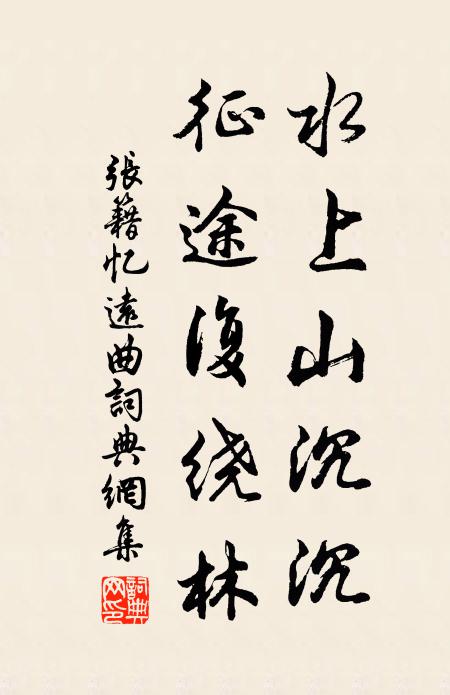 水上山沉沉
征途復绕林
張籍忆遠曲詞典網集
詞典網印